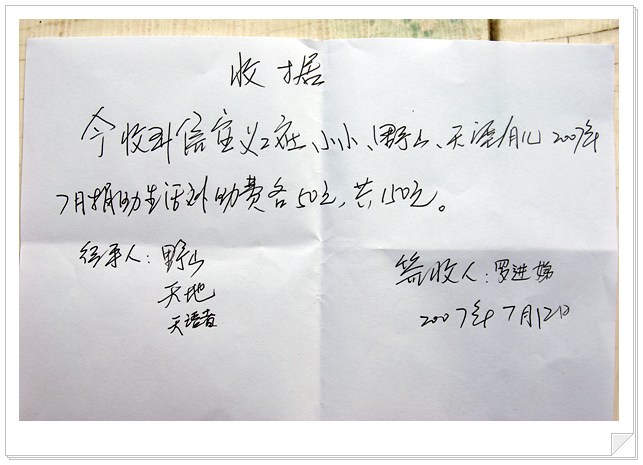 收据
今收到信宜义工在、小小、野山、天涯月儿2007年
7月捐助生活补助费各50元,共150元。
经手人:野山
天地
天语者
签收人:罗进娣
2007年7月12日